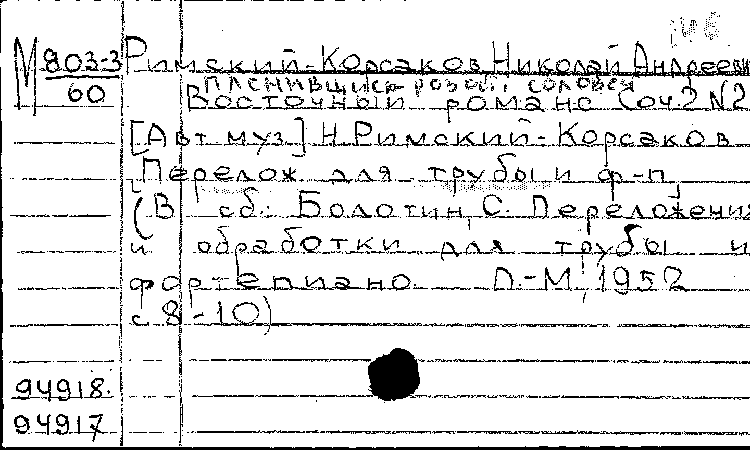 146
М 803-3 Римский-Корсаков, Николай Андрееви
60 Пленившись розой, соловей
Восточный романс (соч. 2 N 2
[Авт муз] Н. Римский-Корсаков
[Перелож для трубы и ф-п,
(В сб.: Болотин, С. Переложения
и обработки для трубы и
фортепиано. Л.-М, 1952
с 8-10)
94918.
94917